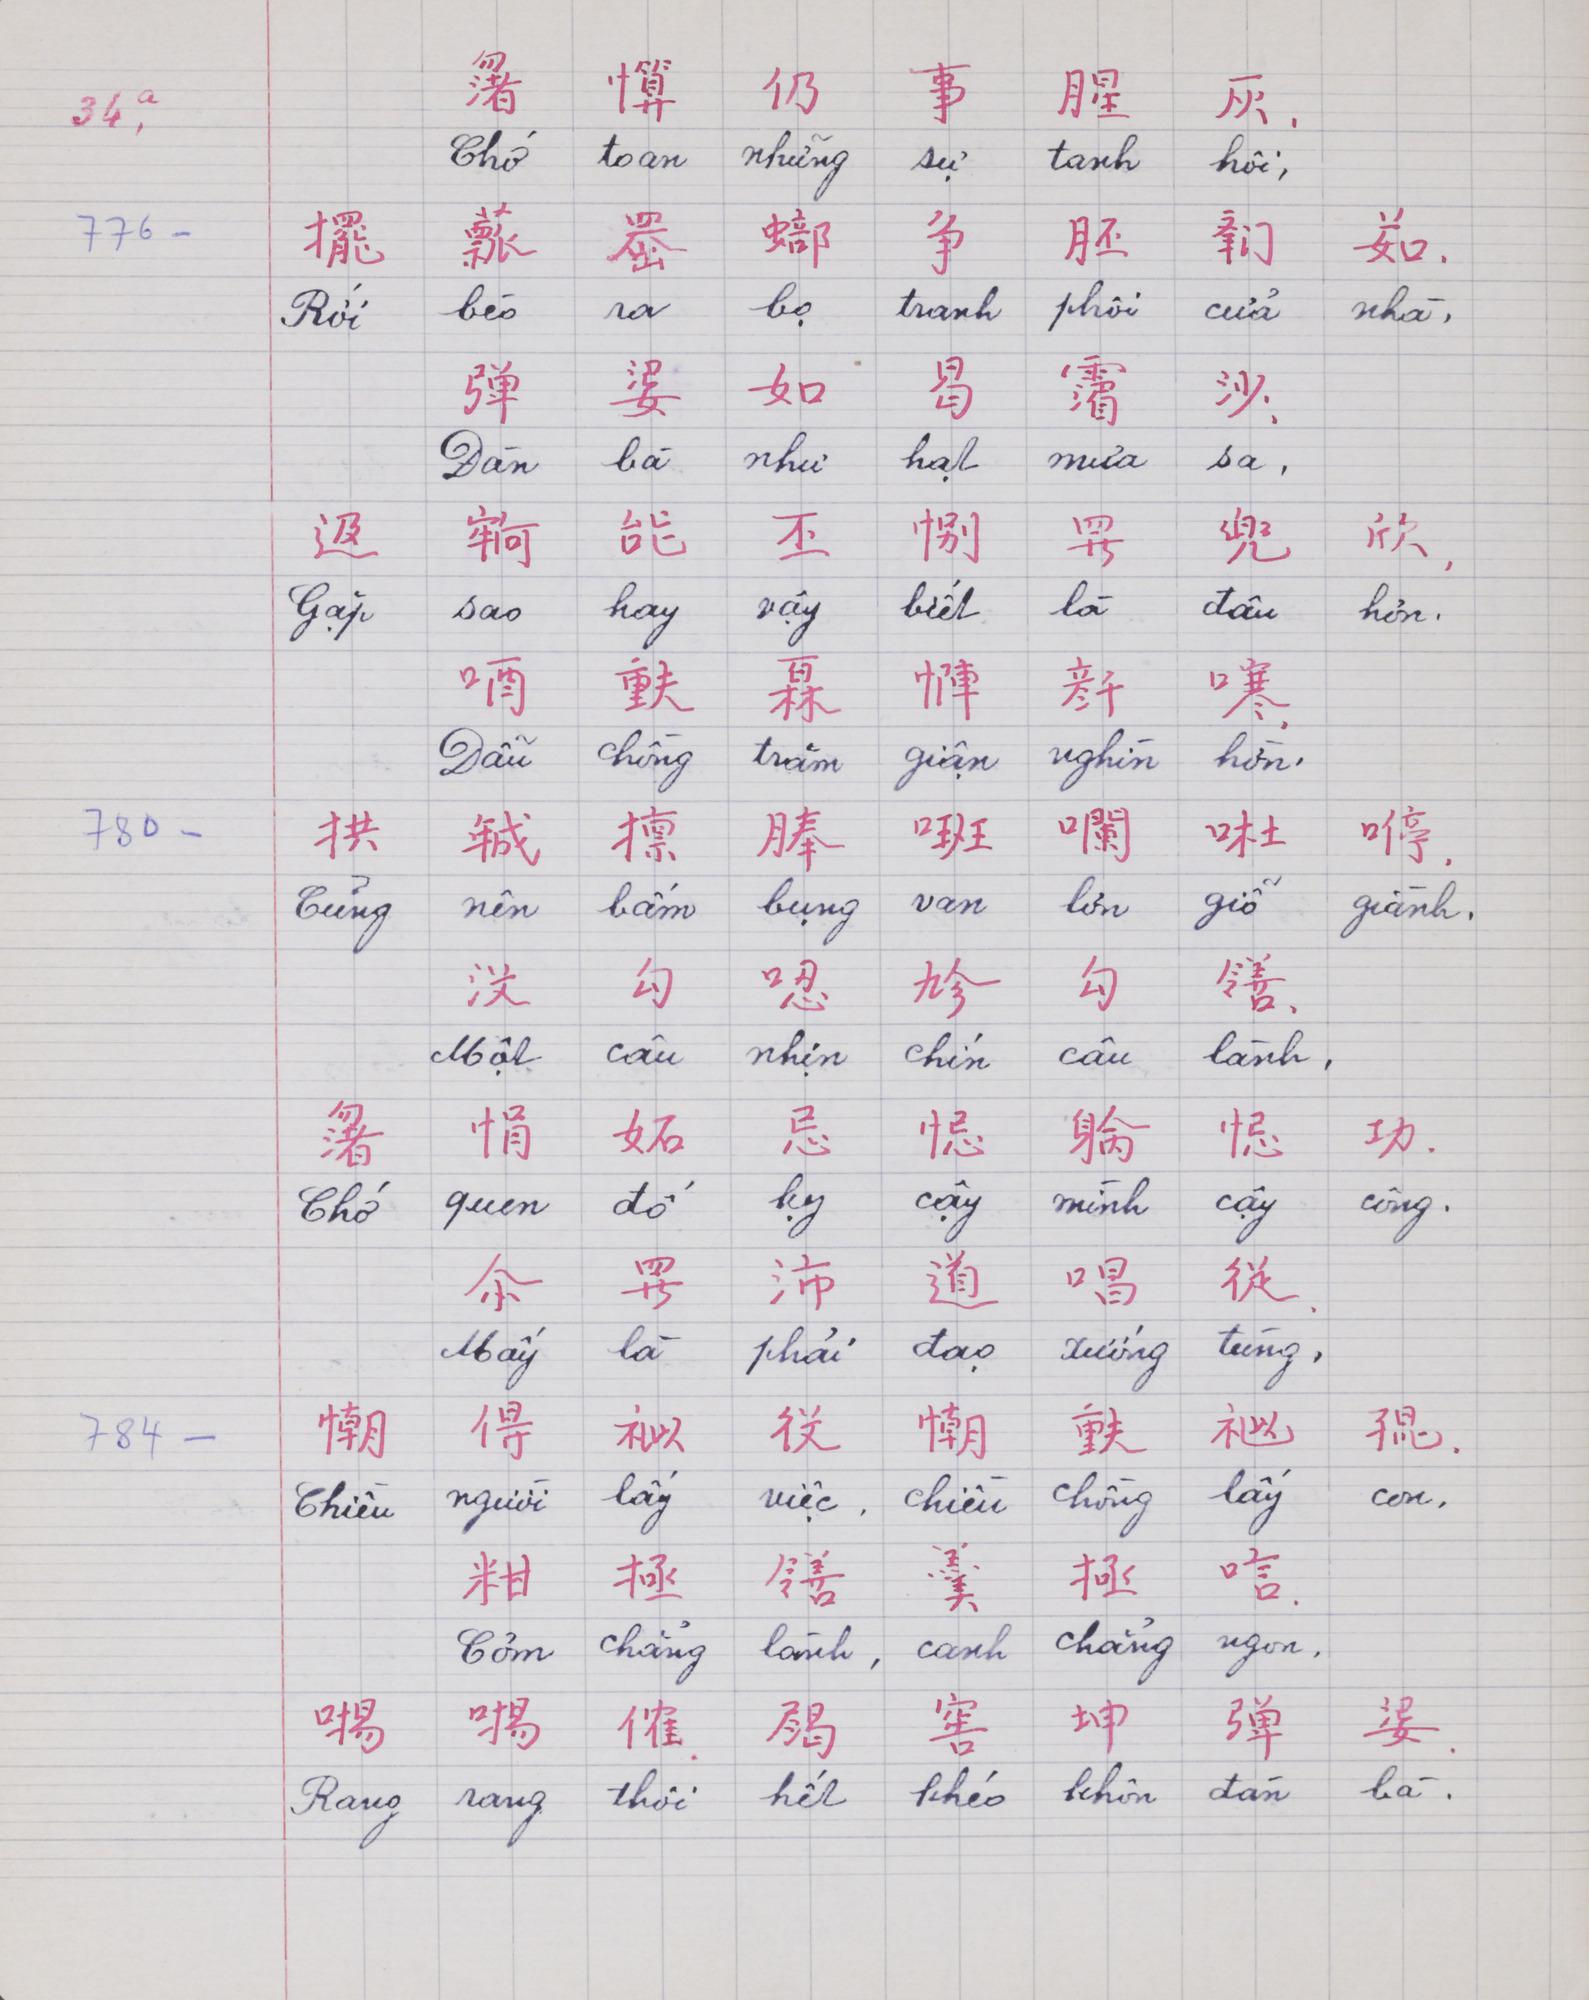 34.a
𣸲 𢯦 仍 事 腥 灰.
Chớ toan những sự tanh hôi,
776 -
擺 藨 𠚢 蜅 争 胚 𨷶 茹.
Rồi bèo ra bọ tranh phôi cửa nhà.
弹 婆 如 曷 𩅹 沙.
Đàn bà như hạt mưa sa,
𨕭 𫳵 能 丕 別 𱺵 兜 欣.
Gặp sao hay vậy biết là đâu hơn.
唒 𫯳 𤾓 惲 𠦳 𡁾.
Dẫu chồng trăm giận nghìn hờn.
780 -
拱 𢧚 擯 䏾 㘞 囒 吐 哼.
Cũng nên bấm bụng van lơn giỗ giành.
没 勾 𠴍 𠃩 勾 𫅜.
Một câu nhịn chín câu lành,
𣸲 悁 妬 忌 㤍 𨉟 㤍 功.
Chớ quen đố kỵ cậy mình cậy công.
尒 𱺵 沛 道 唱 從.
Mấy là phải đạo xướng tùng,
784 -
㦒 㝵 𥙩 役 㦒 𫯳 𥙩 𡥵.
Chiều người lấy việc, chiều chồng lấy con.
粓 拯 𫅜 羹 拯 唁.
Cơm chẳng lành, canh chẳng ngon.
㗂 㗂 傕 歇 窖 坤 弹 婆.
Rang rang thôi hết khéo khôn đàn bà.